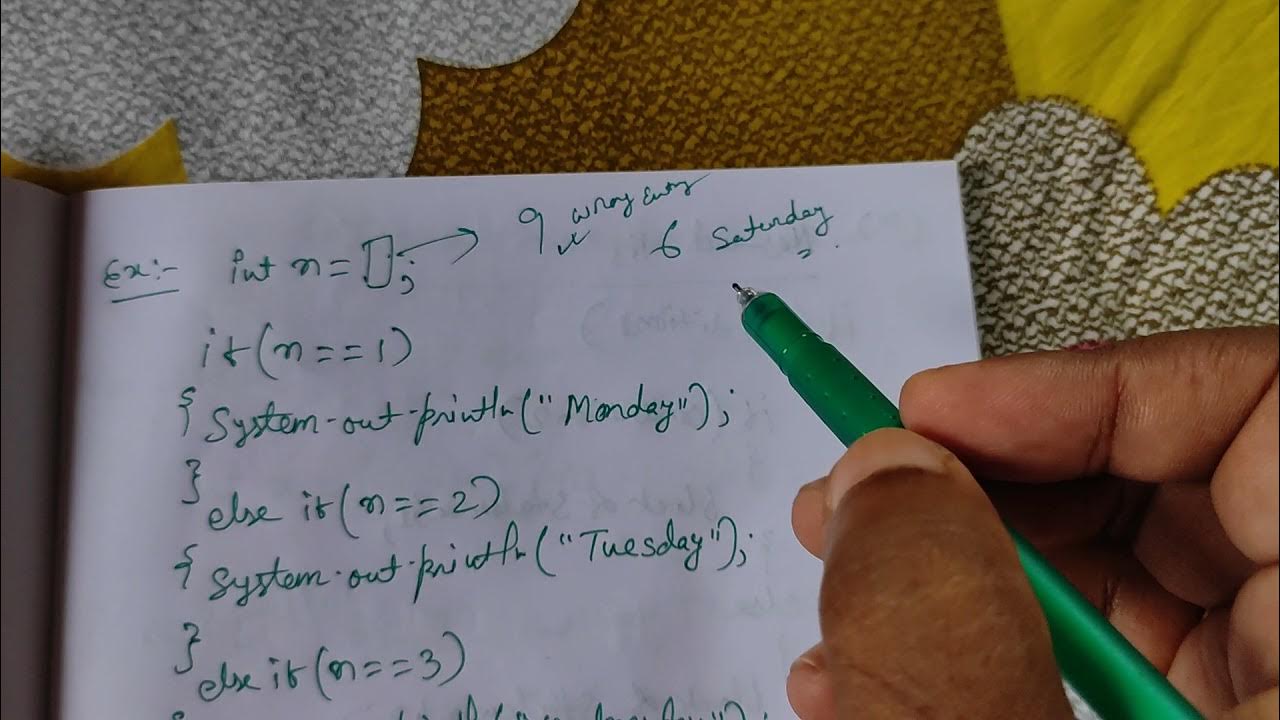 9 wrong Entry
6 Saturday
Ex:- int n = [];
if (n == 1)
{ System.out.println("Monday");
}
else if (n == 2)
{ System.out.println("Tuesday");
}
else if (n == 3)